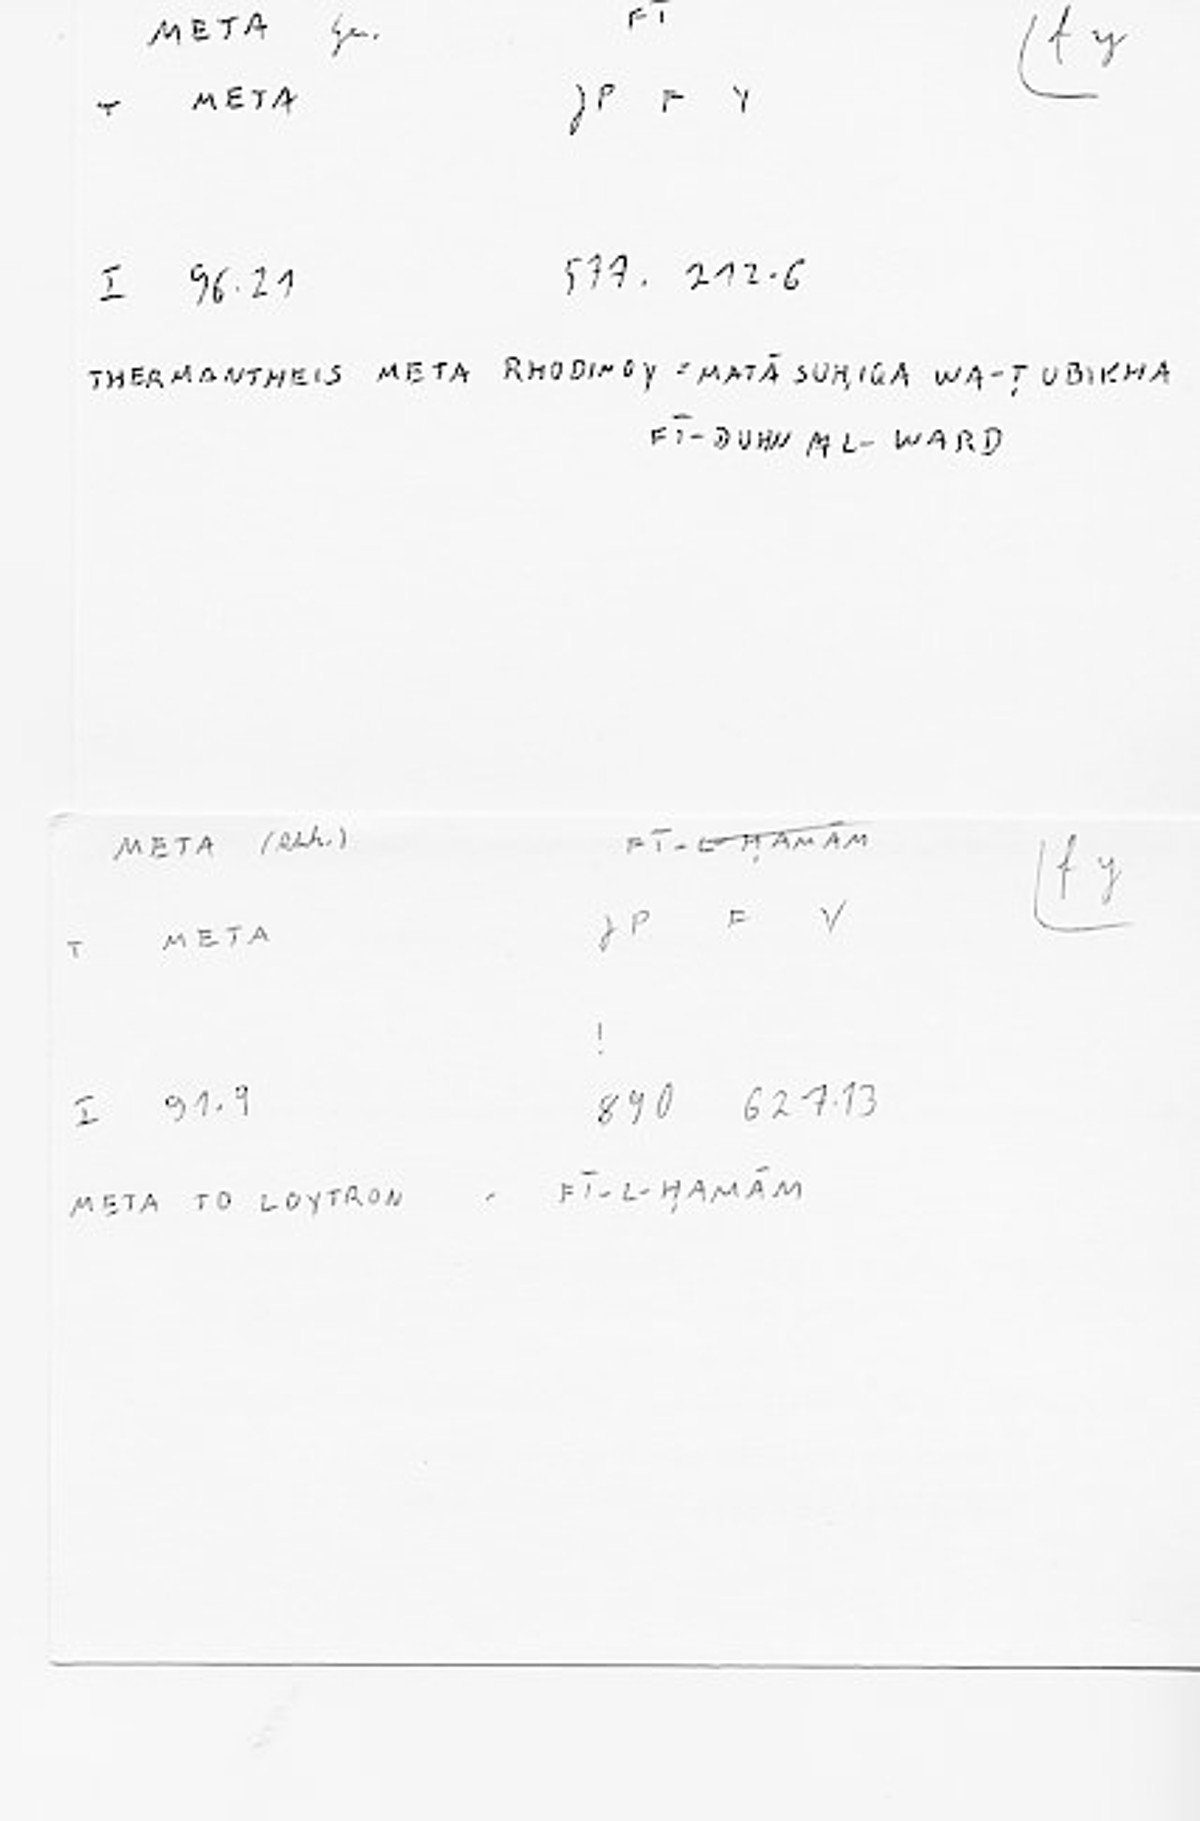 META ge. FĪ ty
T META JP F Y
I 96.21 577. 212.6
THERMANTHEIS META RHODINOY = MATĀ SUḤIGA WA-ṬUBIKHA
FĪ-DUHN AL-WARD
META FĪ-L-ḤAMĀM ty
T META JP F V
!
I 91.9 890 627.13
META TO LOYTRON - FĪ-L-ḤAMĀM